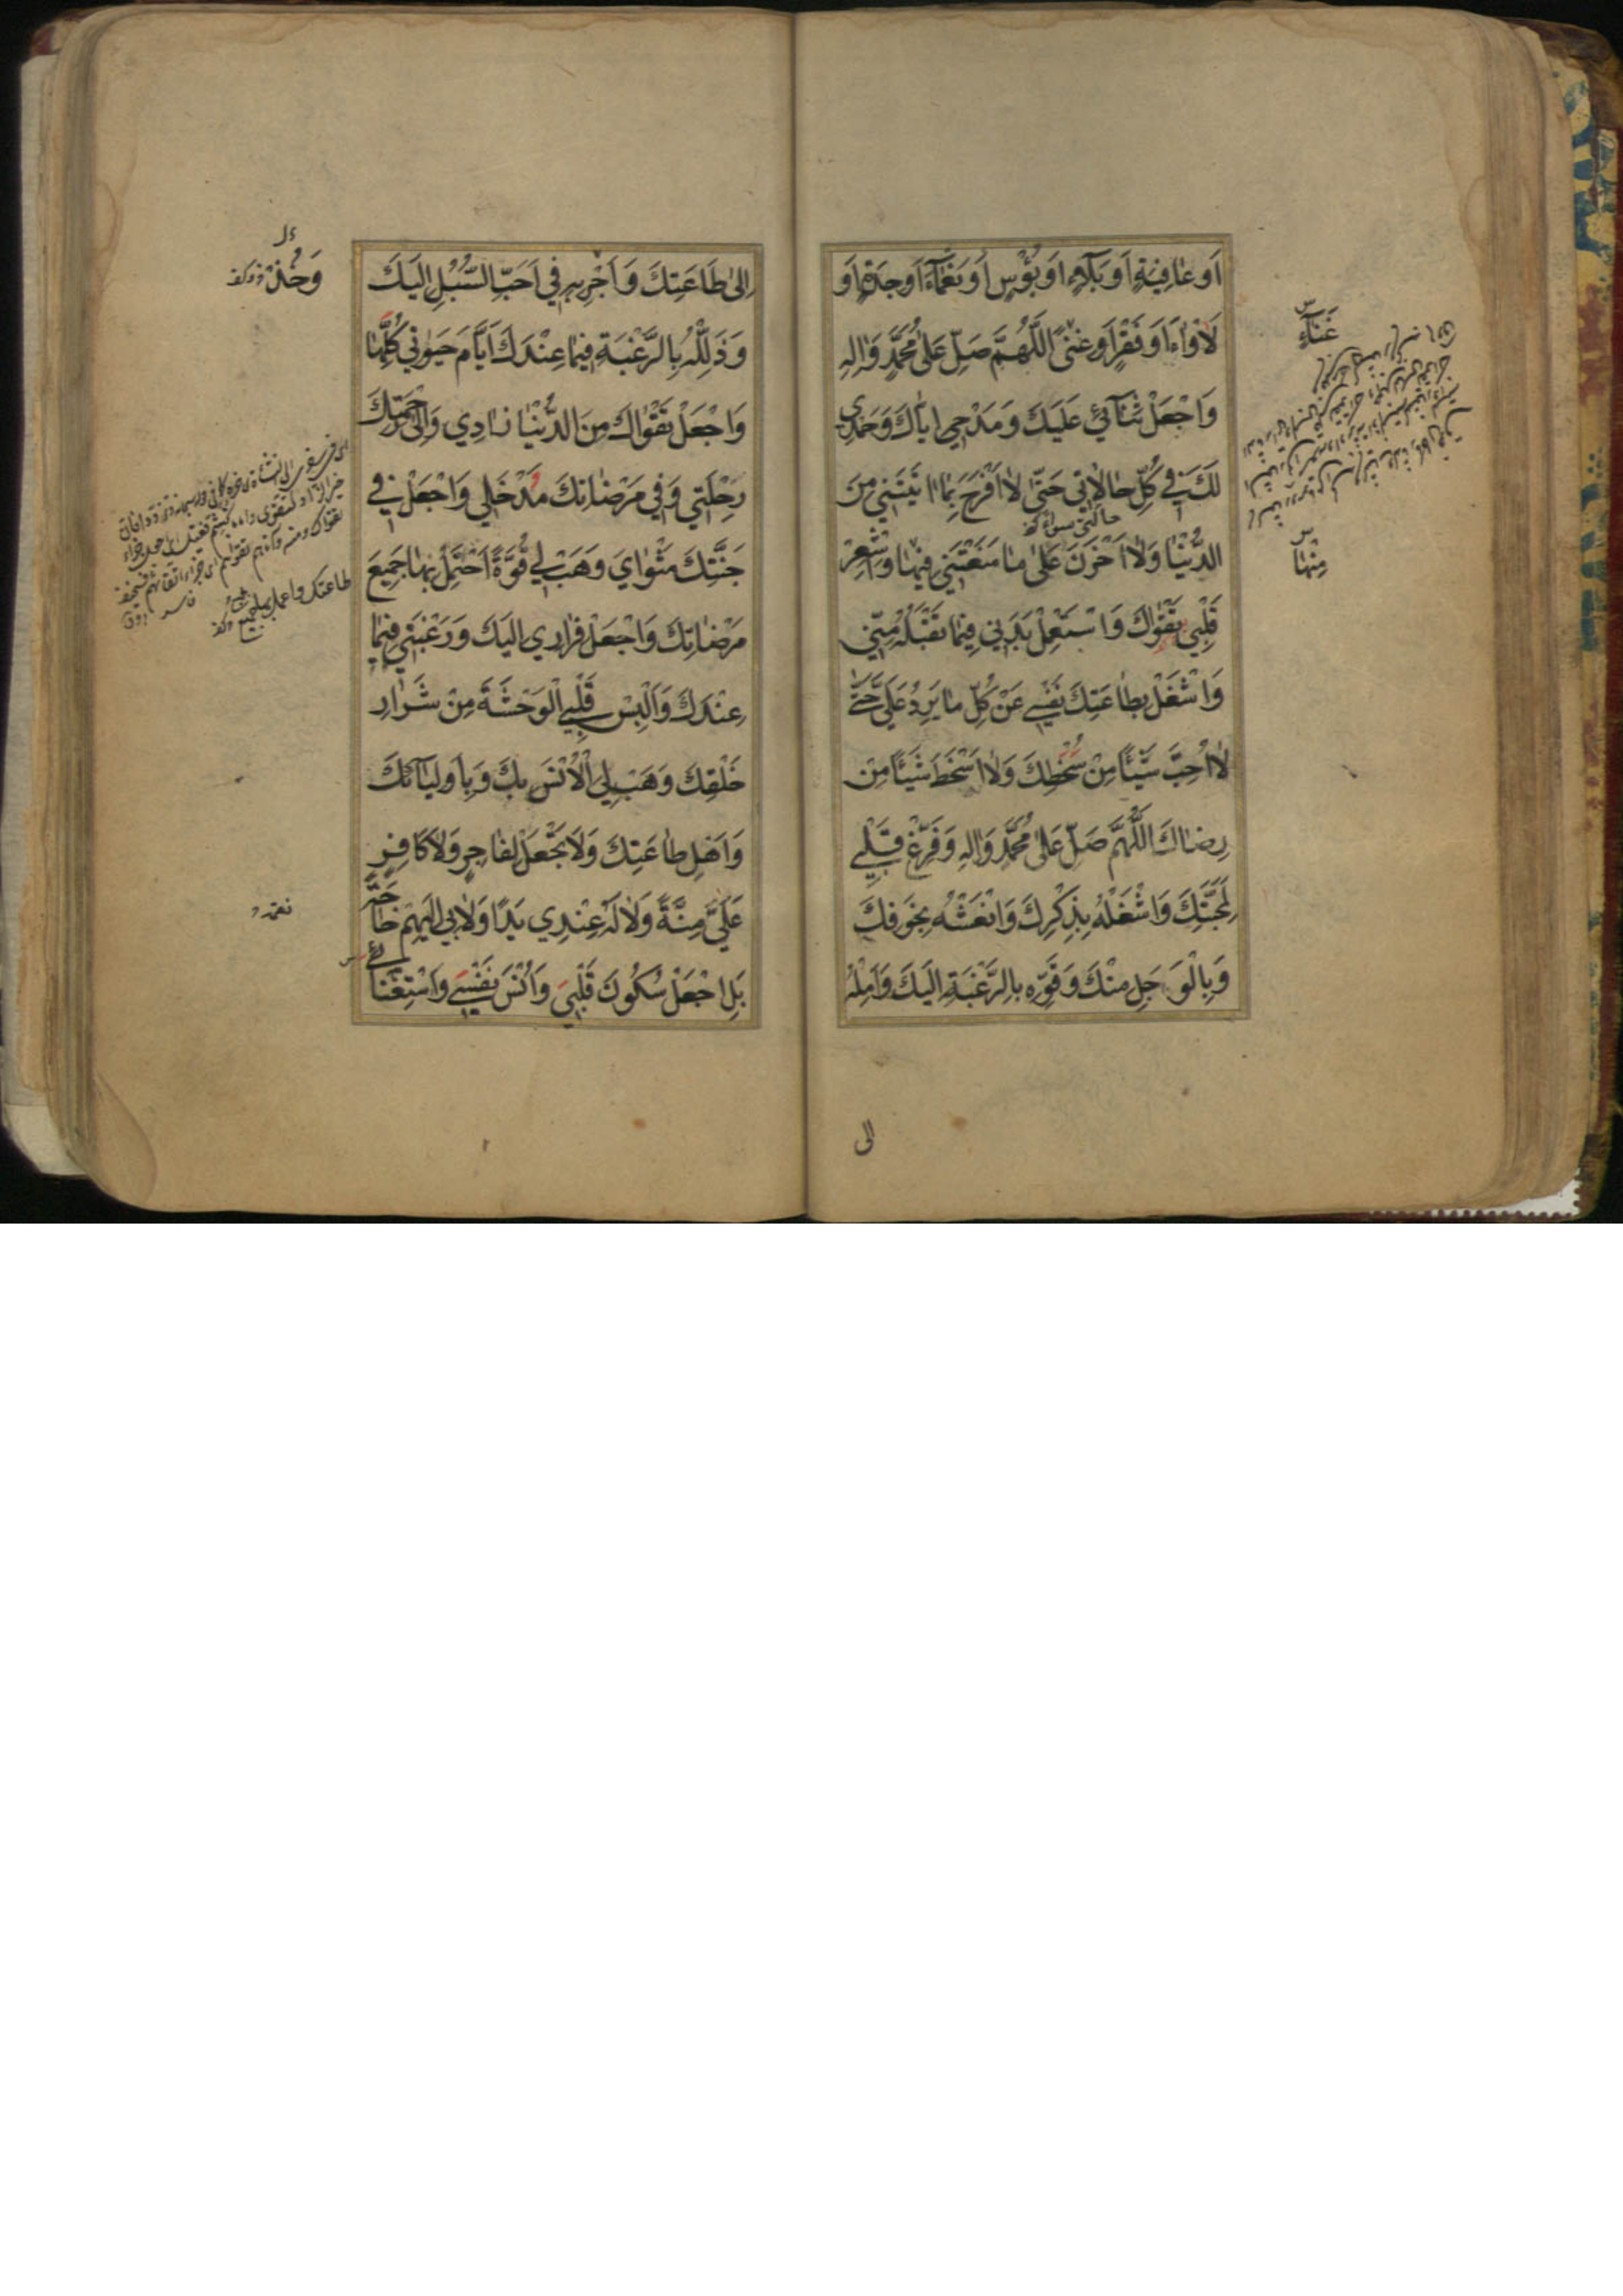 اَوْ عَافِيَةٍ اَوْ بَلَاءٍ اَوْ بُؤْسٍ اَوْ نَعْمَآءَ اَوْ جِدَةٍ اَوْ
لَاْوَاءَ اَوْ فَقْرٍ اَوْ غِنًى اَللّٰهُمَّ صَلِّ عَلٰى مُحَمَّدٍ وَاٰلِهِ
وَاجْعَلْ ثَنَآئِي عَلَيْكَ وَمَدْحِي اِيَّاكَ وَحَمْدِي
لَكَ فِي كُلِّ حَالَاتِي حَتّٰى لَا اَفْرَحَ بِمَا اٰتَيْتَنِي مِنَ
الدُّنْيَا وَلَا اَحْزَنَ عَلٰى مَا مَنَعْتَنِي فِيهَا وَاَشْعِرْ
قَلْبِي تَقْوَاكَ وَاسْتَعْمِلْ بَدَنِي فِيمَا تَقْبَلُهُ مِنِّي
وَاشْغَلْ بِطَاعَتِكَ نَفْسِي عَنْ كُلِّ مَا يَرِدُ عَلَيَّ حَتّٰى
لَا اُحِبَّ شَيْئًا مِنْ سُخْطِكَ وَلَا اَسْخَطَ شَيْئًا مِنْ
رِضَاكَ اَللّٰهُمَّ صَلِّ عَلٰى مُحَمَّدٍ وَاٰلِهِ وَفَرِّغْ قَلْبِي
لِمَحَبَّتِكَ وَاشْغَلْهُ بِذِكْرِكَ وَانْعَشْهُ بِخَوْفِكَ
وَبِالْوَجَلِ مِنْكَ وَقَوِّهِ بِالرَّغْبَةِ اِلَيْكَ وَاَمِلْهُ
الى
غَنَآءٍ
مِنْهَا
اِلٰى طَاعَتِكَ وَاَجْرِ بِهِ فِي اَحَبِّ السُّبُلِ اِلَيْكَ
وَذَلِّلْهُ بِالرَّغْبَةِ فِيمَا عِنْدَكَ اَيَّامَ حَيٰوتِي كُلَّهَا
وَاجْعَلْ تَقْوَاكَ مِنَ الدُّنْيَا زَادِي وَاِلٰى رَحْمَتِكَ
رِحْلَتِي وَفِي مَرْضَاتِكَ مَدْخَلِي وَاجْعَلْ فِي
جَنَّتِكَ مَثْوَايَ وَهَبْ لِي قُوَّةً اَحْتَمِلُ بِهَا جَمِيعَ
مَرْضَاتِكَ وَاجْعَلْ فِرَارِي اِلَيْكَ وَرَغْبَتِي فِيمَا
عِنْدَكَ وَاَلْبِسْ قَلْبِي الْوَحْشَةَ مِنْ شِرَارِ
خَلْقِكَ وَهَبْ لِي الْاُنْسَ بِكَ وَبِاَوْلِيَآئِكَ
وَاَهْلِ طَاعَتِكَ وَلَا تَجْعَلْ لِفَاجِرٍ وَلَا كَافِرٍ
عَلَيَّ مِنَّةً وَلَا لَهُ عِنْدِي يَدًا وَلَا بِي اِلَيْهِمْ حَاجَةً
بَلِ اجْعَلْ سُكُونَ قَلْبِي وَاُنْسَ نَفْسِي وَاسْتِغْنَائِي
وَخُذْ